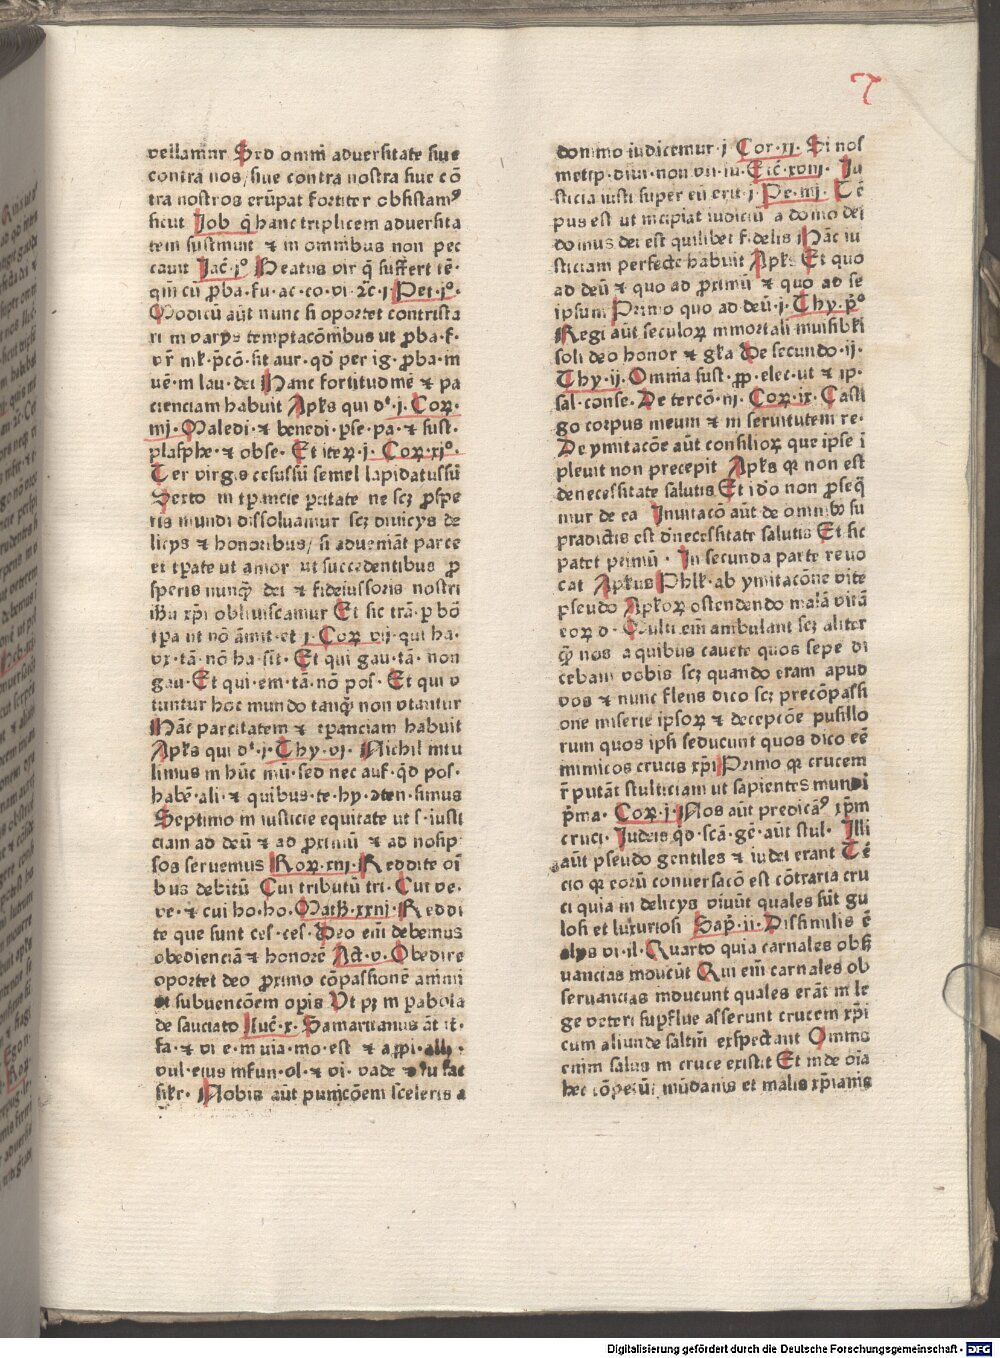 7
vellamur Sed omni aduersitate siue
contra nos/siue contra nostra siue cō
tra nostros erūpat fortiter obsistamꝰ
sicut Job q̄ hanc triplicem aduersita
tem sustinuit ⁊ in omnibus non pec
cauit Jac̄·i° Beatus vir q̄ suffert tē·
qm̄ cū ꝓba·fu·ac·co·vi·⁊c̄·i Pet·i°·
Modicū aūt nunc si oportet contrista
ri in varijs temptacōnibus ut ꝓba·f·
vr̄ ml̓·p̄cō·sit aur·qd̓ per ig·ꝓba·in
uē·in lau·dei Hanc fortitudinē ⁊ pa
cienciam habuit Apl̓s qui d̓·i·Coꝝ·
iiij·Maledi·⁊ benedi·pse·pa·⁊ sust·
blasphe·⁊ obse·Et iteꝝ·i·Coꝝ·xi°·
Ter virgis cesussū semel lapidatussū
Sexto in tꝑancie ꝑcitate ne scꝫ ꝓspe
ris mundi dissoluamur scꝫ diuicijs de
licijs ⁊ honoribus/si adueniāt parce
et tꝑate ut amor ut succedentibus ꝓ
speris nunꝙ̄ dei ⁊ fideiussoris nostri
ih̄u xp̄i obliuiscamur Et sic trā·ꝑ bō
tꝑa ut nō āmit·et i·Coꝝ vij·qui ha·
vx·tā·nō ha·sit·Et qui gau·tā·non
gau·Et qui·em·tā·nō pos·Et qui v
tuntur hoc mundo tanꝙ̄ non vtantur
Hāc parcitatem ⁊ tꝑanciam habuit
Apl̓s qui d̓·i·Thy·vi·Nichil intu
limus in hūc mū·sed nec auf·qd̓ pos·
habē·ali·⁊ quibus·te·hy·ꝯten·simus
Septimo in iusticie equitate ut s·iusti
ciam ad deū ⁊ ad proximū ⁊ ad nosip
sos seruemus Roꝝ·xiij·Reddite oī
bus debitū Cui tributū tri·Cui ve·
ve·⁊ cui ho·ho·Math·xxij·Reddi
te que sunt ces·ces·Deo eī debemus
obedienciā ⁊ honorē Act·v·Obedire
oportet deo proximo cōpassionē animi
et subuencōem opis Vt pꝫ in ꝑabola
de sauciato Luc̄·x·Samaritanus āt it·
fa·⁊ vi e·in uia·mo·est ⁊ appi·alli·
vul·eius infun·ol·⁊ vi·vade ⁊ tu fac
sil̓r·Nobis aūt punicōem sceleris a
domino iudicemur·i Cor·xi·Si nos
metip·diiu·non vti·iu·Ezc̄·xviij·Iu
sticia iusti super eū erit·i Pe·iiij·Tē
pus est ut incipiat iudiciū a domo dei
domus dei est quilibet fidelis Hāc iu
sticiam perfecte habuit Apl̓s Et quo
ad deū ⁊ quo ad primū ⁊ quo ad se
ipsum Primo quo ad deū·i·Thy·p°
Regi aūt seculoꝝ inmortali inuisibl̓i
soli deo honor ⁊ gl̓a De secundo·ij·
Thy·ij·Omnia sust·ꝓp·elec·ut ⁊ ip·
sal·conse·De tercō·ij·Coꝝ·ix·Casti
go corpus meum ⁊ in seruitutem re·
De ymitacōe aūt consilioꝝ que ipse i
pleuit non precepit Apl̓s qꝛ non est
de necessitate salutis Et id̓o non ꝓseq̄
mur de ea Inuitacō aūt de omnibꝫ su
pradictis est d̓ necessitate salutis Et sic
patet primū·In secunda parte reuo
cat Apl̓us Phl̓k·ab ymitacōne vite
pseudo Apl̓oꝝ ostendendo malā vitā
eoꝝ d·Multi eī ambulant scꝫ aliter
ꝙ̄ nos a quibus cauete quos sepe di
cebam vobis scꝫ quando eram apud
vos ⁊ nunc flens dico scꝫ precōpassi
one miserie ipsoꝝ ⁊ decepcōe pusillo
rum quos ipsi seducunt quos dico eē
inimicos crucis xp̄i Primo qꝛ crucem
r̄ putāt stulticiam ut sapientes mundi
p̄ma·Coꝝ·i·Nos aūt predicāꝰ xp̄m
cruci·Judeis qd̓ scā·gē·aūt stul·Illi
aūt pseudo gentiles ⁊ iudei erant Tē
cio qꝛ eoꝝ conuersacō est cōtraria cru
ci quia in delicijs viuūt quales sūt gu
losi et luxuriosi Sap̄·ii·Dissimilis ē
alijs vi·il·Quarto quia carnales obſ
uancias mouēt Qui eī carnales ob
seruancias inducunt quales erāt in le
ge veteri supflue asserunt crucem xp̄i
cum aliunde saltim exspectant Omnis
enim salus in cruce existit Et inde oīa
hec cōpetūt mūdanis et malis xp̄ianis
Digitalisierung gefördert durch die Deutsche Forschungsgemeinschaft · DFG